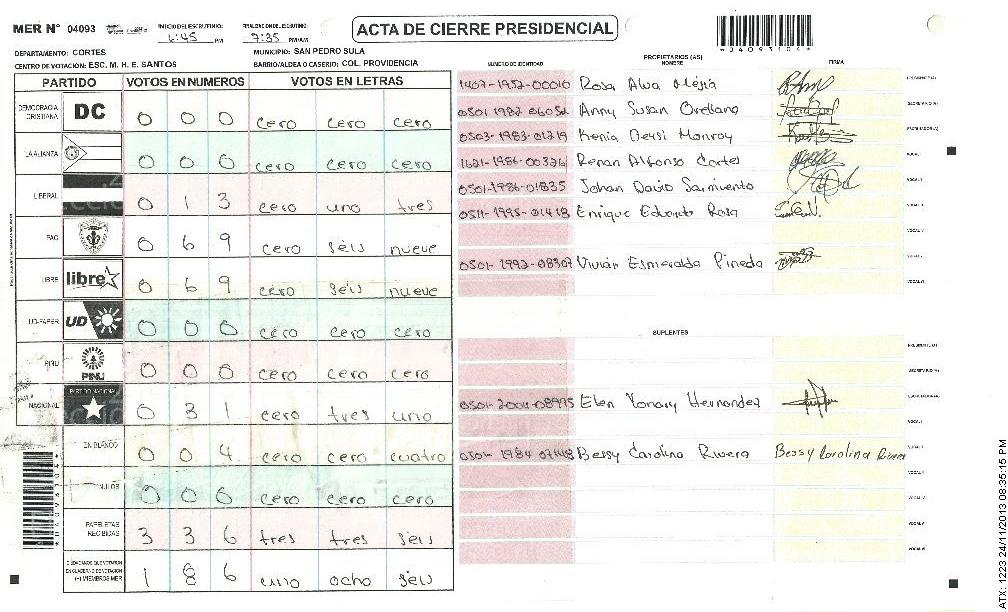 MER N° 04093
INICIO DEL ESCRUTINIO: 6:45 PM
FINALIZACION DEL ESCRUTINIO: 7:35 PM/AM
ACTA DE CIERRE PRESIDENCIAL
*04093104*
DEPARTAMENTO: CORTES
MUNICIPIO: SAN PEDRO SULA
CENTRO DE VOTACION: ESC. M. H. E. SANTOS
BARRIO/ALDEA O CASERIO: COL. PROVIDENCIA
PARTIDO VOTOS EN NUMEROS VOTOS EN LETRAS
DEMOCRACIA CRISTIANA DC 0 0 0 cero cero cero
LA ALIANZA 0 0 0 cero cero cero
LIBERAL 0 1 3 cero uno tres
PAC 0 6 9 cero seis nueve
LIBRE libre 0 6 9 cero seis nueve
UD-FAPER UD 0 0 0 cero cero cero
PINU PINU 0 0 0 cero cero cero
NACIONAL PARTIDO NACIONAL 0 3 1 cero tres uno
EN BLANCO 0 0 4 cero cero cuatro
NULOS 0 0 0 cero cero cero
PAPELETAS RECIBIDAS 3 3 6 tres tres seis
CIUDADANOS QUE VOTARON EN CUADERNO DE VOTACION (+) MIEMBROS MER 1 8 6 uno ocho seis
PROPIETARIOS (A)
NUMERO DE IDENTIDAD NOMBRE FIRMA
1407-1952-00010 Rosa Alva Mejia PRESIDENTE (A)
0501 1982 06054 Anny Susan Orellana SECRETARIO (A)
0503-1983-01219 Kenia Deysi Monroy ESCRUTADOR (A)
1621-1986-00326 Renan Alfonso Cortes VOCAL I
0501-1986-01835 Johan David Sarmiento
0511-1995-01418 Enrique Eduardo Rosa
0501-1992-08307 Vivian Esmeralda Pineda
SUPLENTES
PRESIDENTE (A)
SECRETARIO (A)
0501-2004-08975 Elen Yonary Hernandez ESCRUTADOR (A)
VOCAL I
0501-1984 07448 Bessy Carolina Rivera Bessy Carolina Rivera
ATX: 1223 24/11/2013 08:35:15 PM